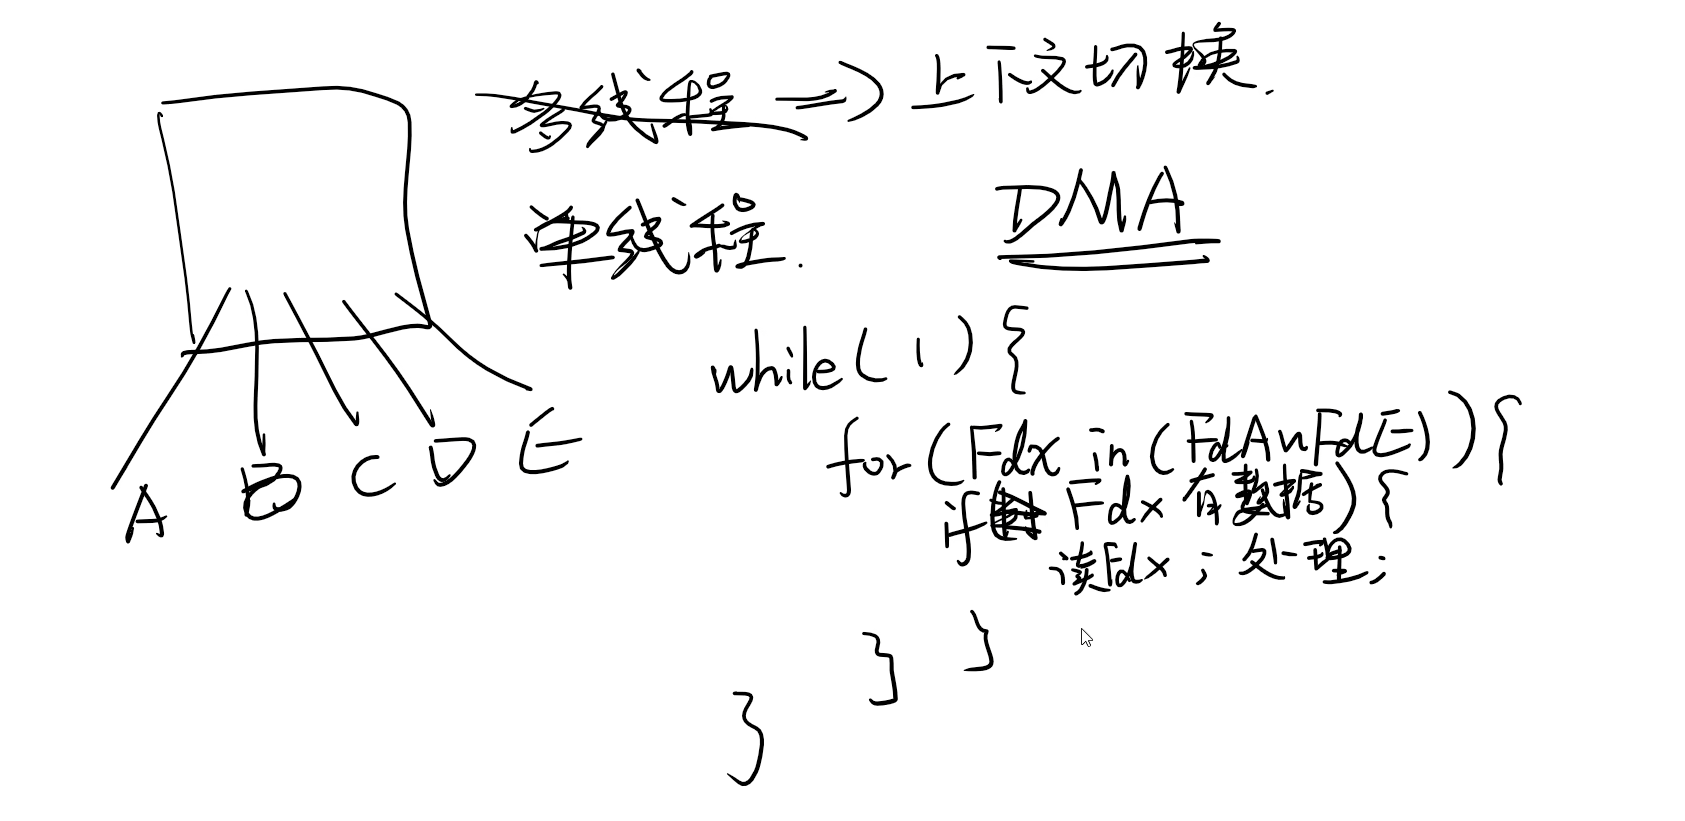 多线程 => 上下文切换.
单线程.
DMA
while(1){
for(Fdx in (FdA~FdE)){
if( Fdx有数据){
读Fdx; 处理;
}
}
}
A B C D E